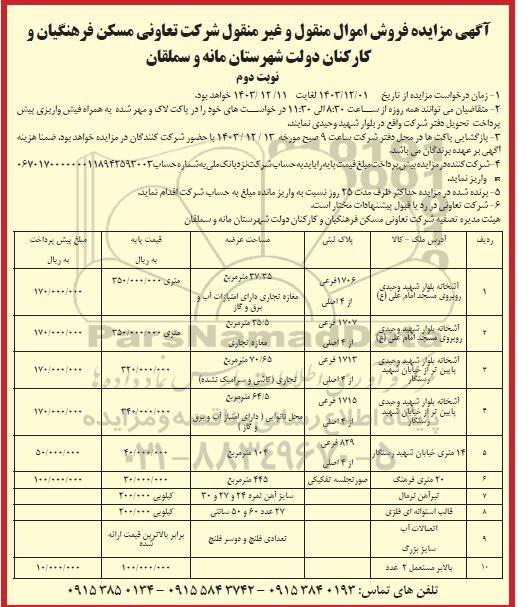 آگهی مزایده فروش اموال منقول و غیر منقول شرکت تعاونی مسکن فرهنگیان و
کارکنان دولت شهرستان مانه و سملقان
نوبت دوم
۱- زمان درخواست مزایده از تاریخ ۱۴۰۳/۱۲/۰۱ لغایت ۱۴۰۳/۱۲/۱۱ خواهد بود.
۲- متقاضیان می توانند همه روزه از ساعت ۸:۳۰ الی ۱۱:۳۰ در خواست های خود را در پاکت لاک و مهر شده به همراه فیش واریزی پیش
پرداخت تحویل دفتر شرکت واقع در بلوار شهید وحیدی نمایند.
۳- بازگشایی پاکت ها در محل دفتر شرکت ساعت ۹ صبح مورخه ۱۴۰۳/۱۲/۱۳ با حضور شرکت کنندگان در مزایده خواهد بود. ضمنا هزینه
آگهی بر عهده برندگان می باشد.
۴- شرکت کننده در مزایده پیش پرداخت مبلغ قیمت پایه را باید به حساب شرکت نزد بانک ملی به شماره حساب
واریز نماید.
۵- برنده شده در مزایده حداکثر ظرف مدت ۲۵ روز نسبت به واریز مانده مبلغ به حساب شرکت اقدام نماید.
۶- شرکت تعاونی در رد یا قبول پیشنهادات مختار است.
هیئت مدیره تصفیه شرکت تعاونی مسکن فرهنگیان و کارکنان دولت شهرستان مانه و سملقان
ردیف آدرس ملک - کالا پلاک ثبتی مساحت عرصه قیمت پایه به ریال مبلغ پیش پرداخت به ریال
۱ آشخانه بلوار شهید وحیدی روبروی مسجد امام علی (ع) ۱۷۰۶ فرعی از ۴ اصلی ۳۷/۳۵ مترمربع مغازه تجاری دارای امتیازات آب و برق و گاز متری ۳۵۰/۰۰۰/۰۰۰ ۱۷۰/۰۰۰/۰۰۰
۲ آشخانه بلوار شهید وحیدی روبروی مسجد امام علی (ع) ۱۷۰۷ فرعی از ۴ اصلی ۳۵/۵ مترمربع مغازه تجاری متری ۳۵۰/۰۰۰/۰۰۰ ۱۷۰/۰۰۰/۰۰۰
۳ آشخانه بلوار شهید وحیدی پایین تر از خیابان شهید رستگار ۱۷۱۳ فرعی از ۴ اصلی ۷۰/۶۵ مترمربع تجاری (کاشی و سرامیک نشده) ۳۲۰/۰۰۰/۰۰۰ ۱۷۰/۰۰۰/۰۰۰
۴ آشخانه بلوار شهید وحیدی پایین تر از خیابان شهید رستگار ۱۷۱۵ فرعی از ۴ اصلی ۶۴/۵ مترمربع محل نانوایی (دارای امتیاز آب و برق و گاز) ۳۴۰/۰۰۰/۰۰۰ ۱۷۰/۰۰۰/۰۰۰
۵ ۱۴ متری خیابان شهید رستگار ۸۲۹ فرعی از ۴ اصلی ۱۰۴ مترمربع ۴۰/۰۰۰/۰۰۰ ۵۰/۰۰۰/۰۰۰
۶ ۲۰ متری فرهنگ صورتجلسه تفکیکی ۴۴۵ مترمربع ۳۰/۰۰۰/۰۰۰ ۱۰۰/۰۰۰/۰۰۰
۷ تیرآهن نرمال سایز آهن نمره ۲۴ و ۲۷ و ۳۰ کیلویی ۲۰۰/۰۰۰
۸ قالب استوانه ای فلزی ۲۷ عدد ۶۰ و ۵۰ سانتی کیلویی ۲۰۰/۰۰۰
۹ اتصالات آب سایز بزرگ تعدادی فلنج و دوسر فلنج برابر بالاترین قیمت ارائه شده
۱۰ بالابر مستعمل ۲ عدد ۱۰۰/۰۰۰/۰۰۰ ۱۰/۰۰۰/۰۰۰
تلفن های تماس: ۰۱۹۳ ۳۸۴ ۰۹۱۵ - ۳۷۴۲ ۵۸۴ ۰۹۱۵ - ۰۱۳۴ ۳۸۵ ۰۹۱۵
ParsNamadData
۰۲۱-۸۸۳۴۹۶۷۰-۵